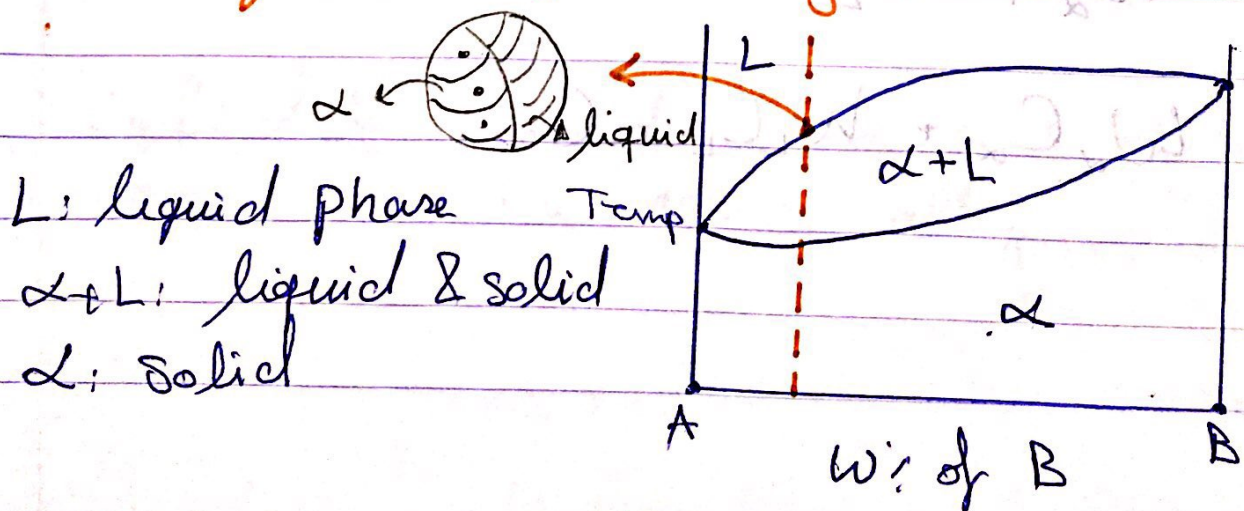 L
α
liquid
α+L
L: liquid phase
Temp
α+L: liquid & solid
α
α: solid
A
B
W% of B